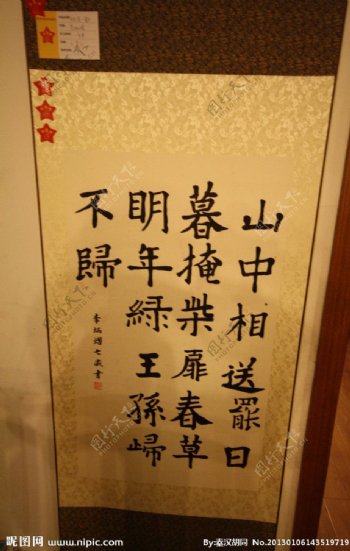 山中相送罷日
暮掩柴扉春草
明年綠王孫歸
不歸
七歲書
昵图网 www.nipic.com
By:秦汉胡同 No.20130106143519719